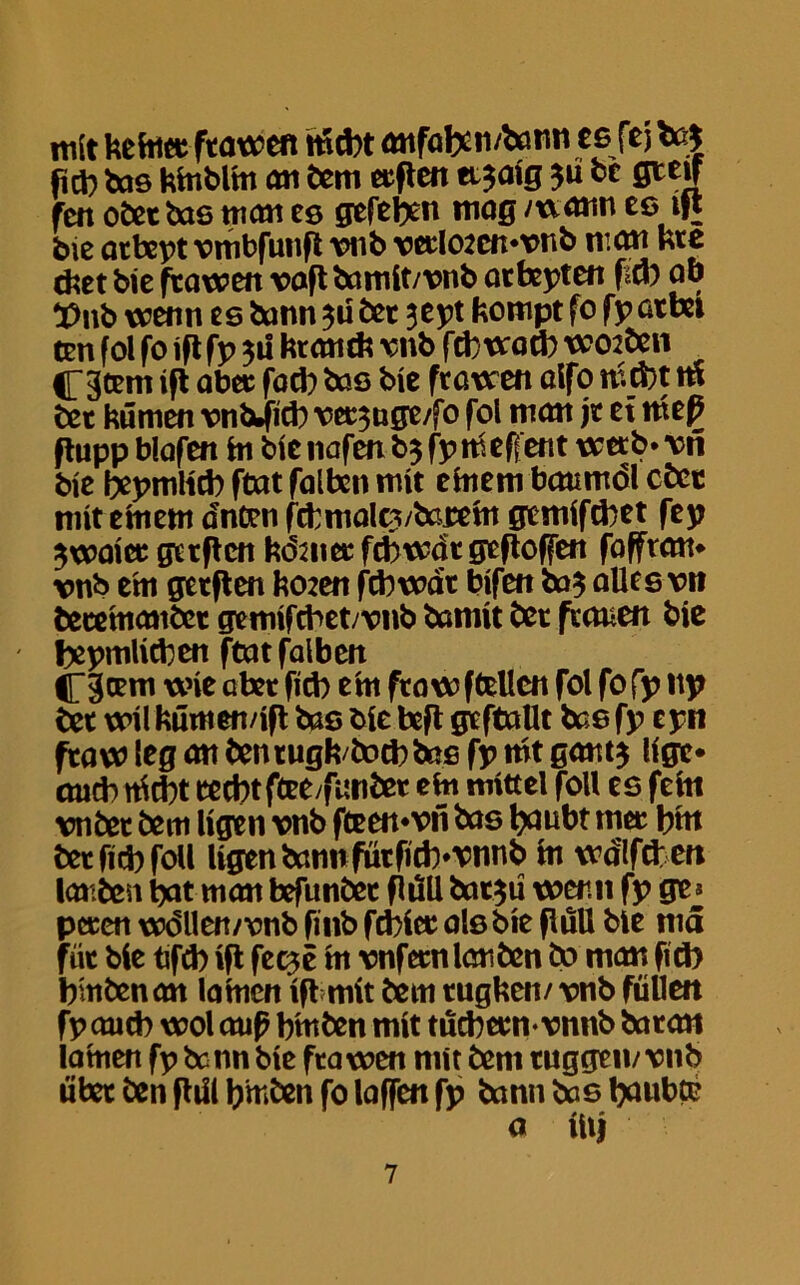 mit keiner frawen nicht anfahen/dann es sej daz
sich das kindlin an dem ersten erzaig zů dē greif
fen oder das man es gesehen mag /wann es ist
die arbeyt vmbsunst vnd verloren·vnd man krē
cket die frawen vast damit/vnd arbeyten sich ab
Vnd wenn es dann zů der zeyt kompt so sy arbei
ten sol so ist sy zů kranck vnd schwach worden
¶Item ist aber sach das die frawen also nicht ni
der kůmen vnd sich verzuge/so sol man jr ei nieß
stupp blasen in die nasen dz sy niessent werd·vn̄
die heymlich stat salben mit einem baumöl oder
mit einem änten schmaltz/darein gemischet sey
zwaier gersten körner schwär gestossen saffran·
vnd ein gersten koren schwär bisen daz alles vn
dereinander gemischet/vnd damit der frauen die
heymlichen stat salben
¶Item wie aber sich ein fraw stellen sol so sy ny
der wil kůmen/ist das die best gestallt das sy eyn
fraw leg an den rugk/doch das sy nit gantz lige·
auch nicht recht stee/sunder ein mittel soll es sein
vnder dem ligen vnd steen·vn̄ das haubt mer hin
der sich soll ligen dann fürsich·vnnd in wälschen
landen hat man besunder stůll darzů wenn sy ge⸗
peren wöllen/vnd sind schier als die stůll die mā
für die tisch ist seczē in vnsern landen do man sich
hinden an lainen ist mit dem rugken/ vnd füllen
sy auch wol auß hinden mit tůchern·vnnd daran
lainen sy dann die frawen mit dem ruggen/vnd
über den stůl hinden so lassen sy dann das haubte
a iiij
7